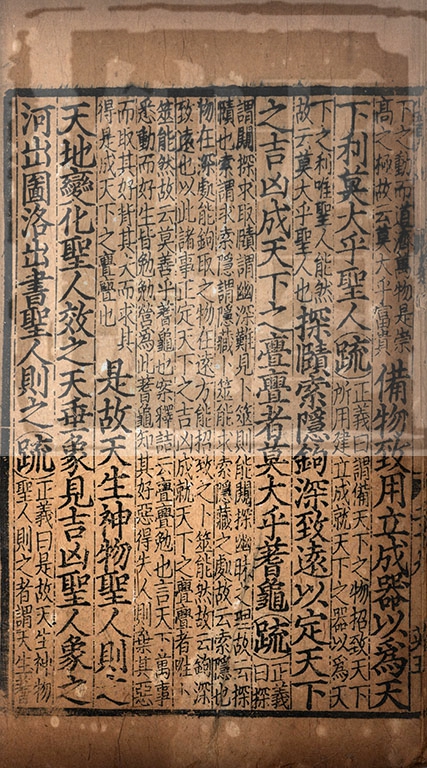 下之動而直濟萬物是崇
高之極故云莫大乎富貴
備物致用立成器以為天
下利莫大乎聖人疏
正義曰謂備天下之物招致天下
所用建立成就天下之器以為天
下之利唯聖人能然
故云莫大乎聖人也
探賾索隱鉤深致遠以定天下
之吉凶成天下之亹亹者莫大乎蓍龜疏
正義
曰探
謂闚探求取賾謂幽深難見卜筮則能闚探幽昧之理故云探
賾也索謂求索隱謂隱藏卜筮能求索隱藏之處故云索隱也
物在深處能鉤取之物在遠方能招致之卜筮能然故云鉤深
致遠也以此諸事正定天下之吉凶成就天下之亹亹者唯卜
筮能然故云莫善乎蓍龜也案釋詁云亹亹勉也言天下萬事
悉動而好生皆勉勉營為此蓍龜知其好惡得失人則棄其惡
而取其好背其失而求其
得是成天下之亹亹也
是故天生神物聖人則之
天地變化聖人效之天垂象見吉凶聖人象之
河出圖洛出書聖人則之疏
正義曰是故天生神物
聖人則之者謂天生蓍